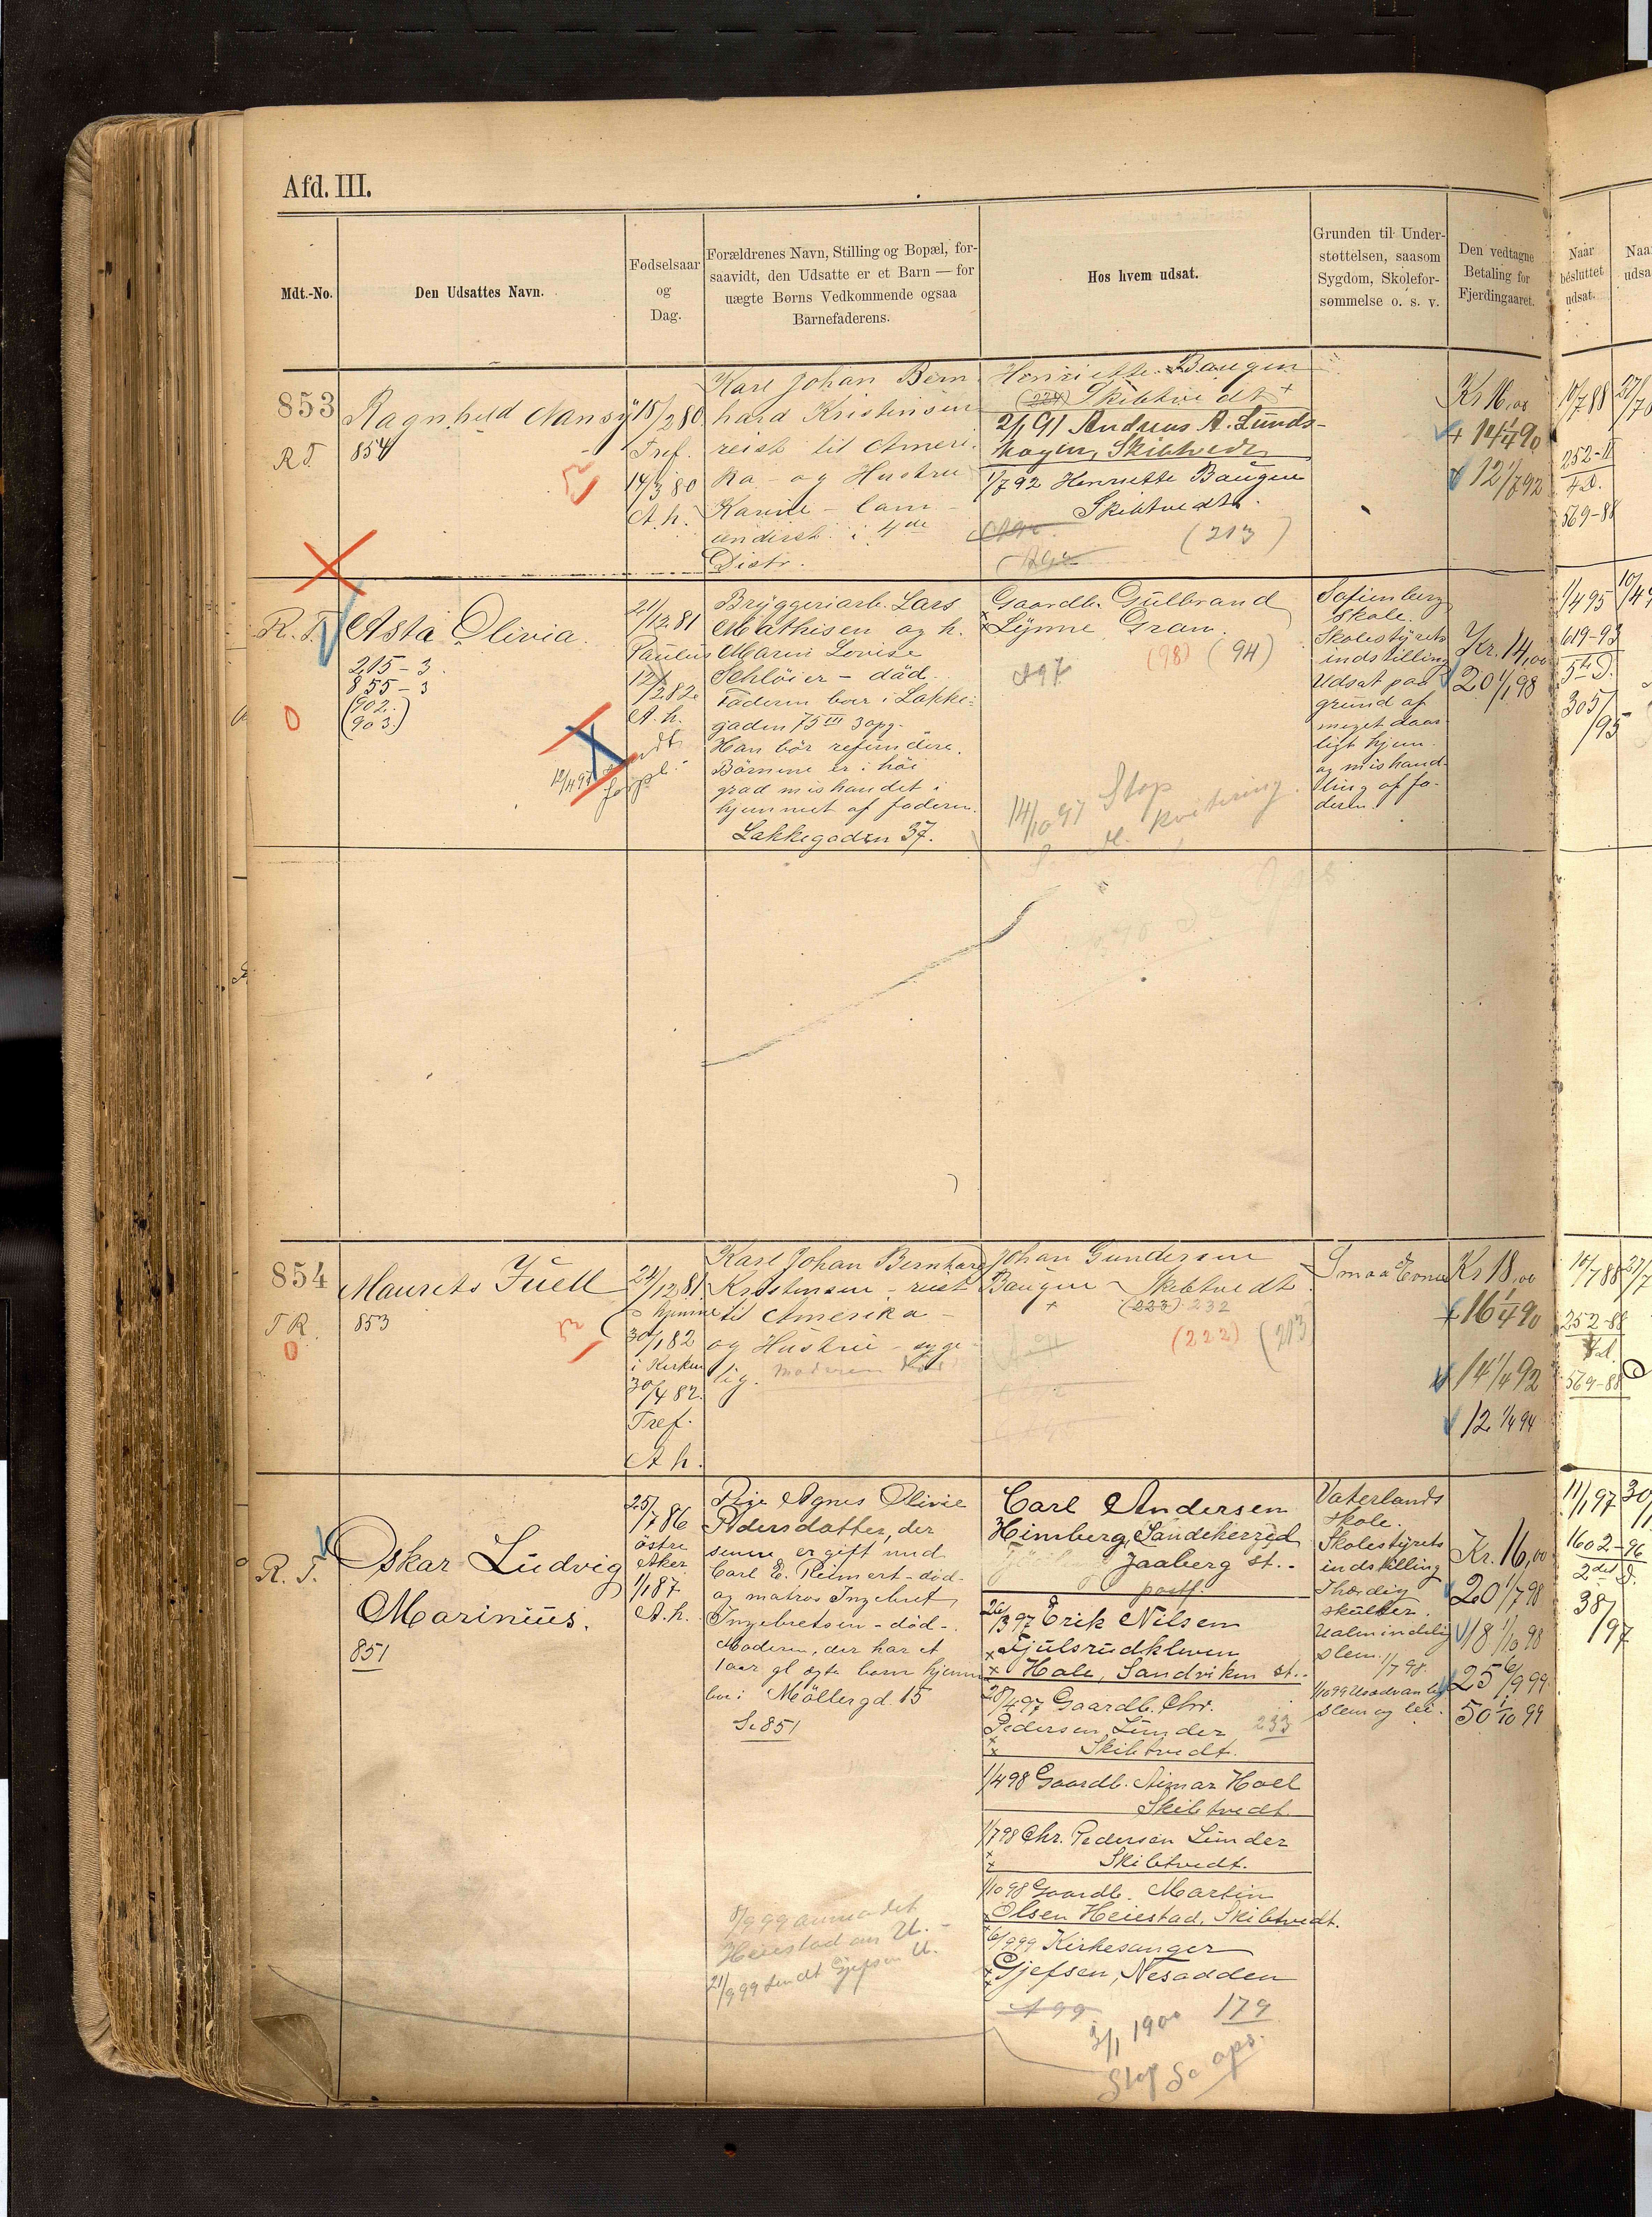 Afd. III.
Mdt.-No.
Den Udsattes Navn.
Fødselsaar
og
Dag.
Forældrenes Navn, Stilling og Bopæl, for-
saavidt, den Udsatte er et Barn — for
uægte Børns Vedkommende ogsaa
Barnefaderens.
Hos hvem udsat.
Grunden til Under-
støttelsen, saasom
Sygdom, Skolefor-
sømmelse o. s. v.
Den vedtagne
Betaling for
Fjerdingaaret.
Naar
besluttet
udsat.
Naa
udsa
853
R T.
Ragnhild Nansy
854
18/2 80
Tref.
14/3 80
A. h.
Karl Johan Bern
hard Kristensen
reist til Ameri
ka - og Hustru
Karine
anderst i 4de
Distr.
Henriette Baugen
(224) Skibtvedt +
2/1 91 Andreas A. Lunds-
Skibtvedt
1/7 92 Henriette Baugen
Skibtvedt.
(213)
Kr 16,00
+ 14 1/4 90
12 1/7 92
10/7 88
252-II
4 D.
569-88
R. T.
Asta Olivia.
215-3
855-3
(902.)
(903.)
0
21/12 81
Paulus
12/2 82
A. h.
Bryggeriarb. Lars
Mathisen og h.
Maren Lovise
Schlöier - död.
Faderen boer i Lakke-
gaden 75 III opg.
Han bör refundere.
Börnene er i höi
grad mishandlet i
hjemmet af faderen.
Lakkegaden 37.
Gaardb. Gulbrand
Lynne, Gran.
(98) (94)
A 97
14/10 97 Stop
kvitering.
Sofienberg
skole.
Skolestyrets
indstilling
Udsat paa
grund af
meget daar-
ligt hjem
og mishand-
ling af fa-
deren.
Kr. 14,00
20 1/1 98
1/4 95
619-93
5te D.
305/95
854
T R.
0
Maurits Juell
853
24/12 81
hjemme
30/1 82
i Kirken
30/4 82
Tref.
A h.
Karl Johan Bernhard
Kristensen - reist
til Amerika -
og Hustru - syge
lig. Moderen död
Johan Gundersen
Baugen - Skibtvedt
+ (223) 232
(222) (213
Smaa Evner
Kr 18,00
+ 16 1/4 90
14 1/4 92
12 1/4 94
10/7 88
252-88
4 d.
569-88
R. T.
Oskar Ludvig
Marinius.
851
25/7 86
östre
Aker
1/1 87
A. h.
Pige Agnes Olivie
Pedersdatter, der
senere er gift med
Carl E. Reimert - död
og matros Ingebret
Ingebretsen - död -
Moderen, der har et
1 aar gl. ægte barn hjemme
bor i Möllergd. 15
Se 851
8/9 99 anmodet
Heiestad om U. -
21/9 99 sendt Gjefsen U.
Carl Andersen
Himberg, Sandeherred
Jaaberg st. -
post
26/3 97 Erik Nilsen
Fjulsrudkleven
Hole, Sandviken st.
28/4 97 Gaardb. Chr.
Pedersen Lunder 233
Skibtvedt.
1/4 98 Gaardb. Aimar Hoel
Skibtvedt
1/7 98 Chr. Pedersen Lunder
Skibtvedt.
1/10 98 Gaardb. Martin
Olsen Heiestad, Skibtvedt.
6/9 99 Kirkesanger
Gjefsen, Nesodden
A 99 179
3/1 1900
Stop Se ops.
Vaterlands
skole.
Skolestyrets
indstilling
Ihærdig
skulker.
Ualmindelig
slem. 1/7 98.
1/10 99 Usædvanlig
slem og lei.
Kr. 16,00
20 1/7 98
18 1/10 98
25 6/9 99
50 1/10 99
11/1 97
1602-96
2det D.
38/97